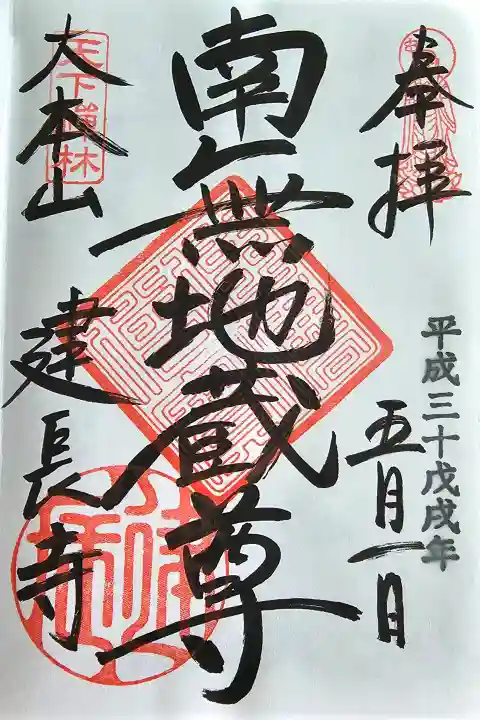 奉拝
平成三十戊戌年
五月一日
南無地蔵尊
天下禅林
大本山
建長寺